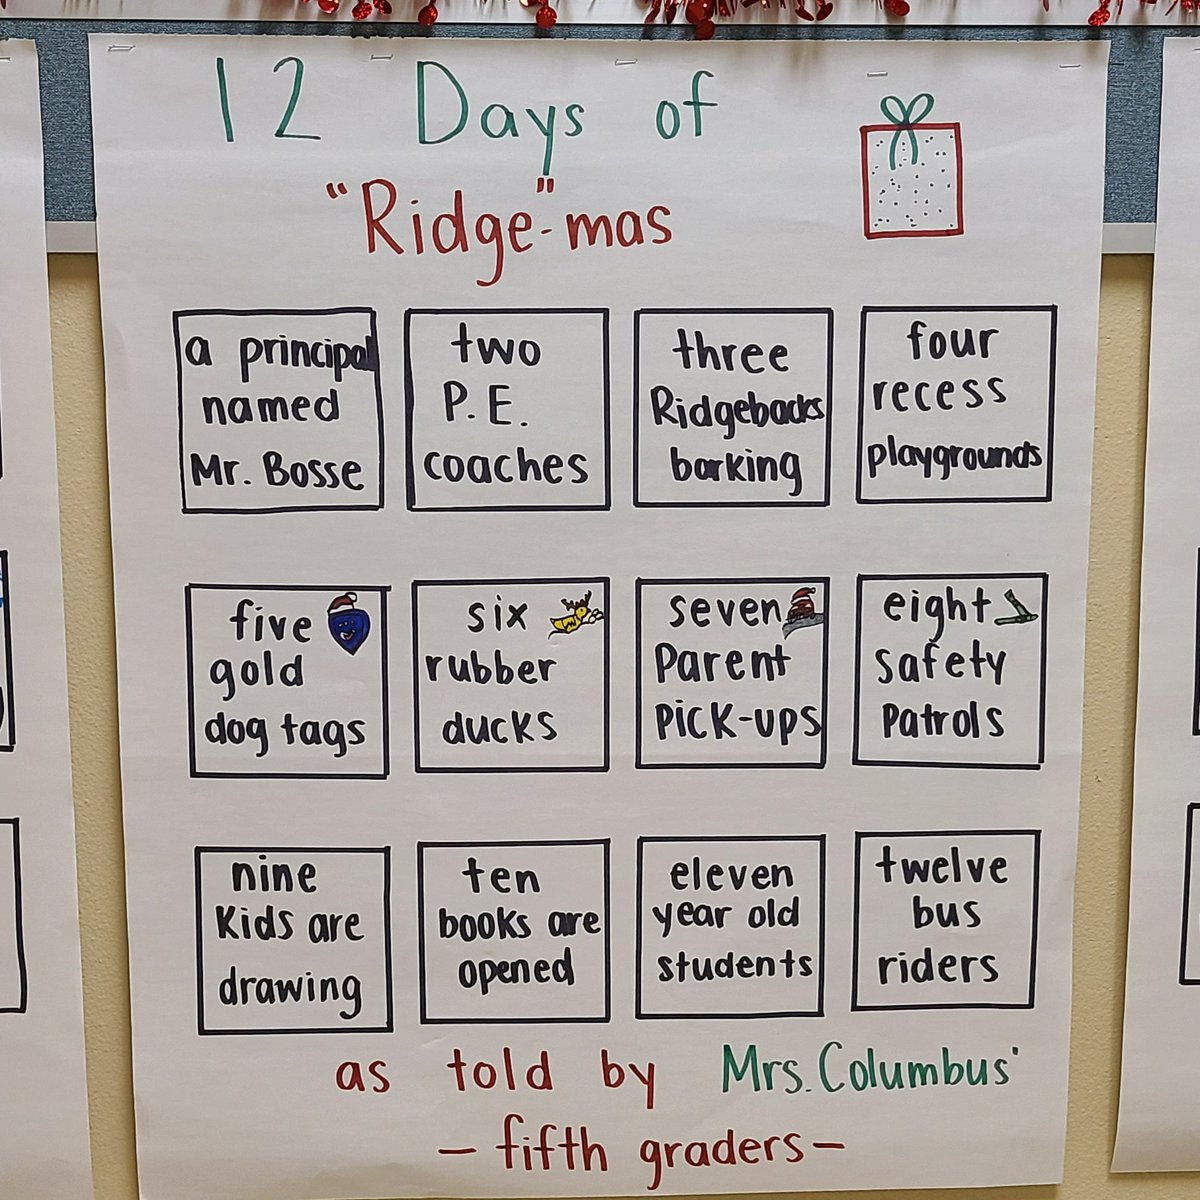 12 Days of
"Ridge"-mas
a principal
named
Mr. Bosse
two
P.E.
coaches
three
Ridgebacks
barking
four
recess
playgrounds
five
gold
dog tags
six
rubber
ducks
seven
Parent
Pick-ups
eight
safety
Patrols
nine
Kids are
drawing
ten
books are
opened
eleven
year old
students
twelve
bus
riders
as told by Mrs. Columbus'
- fifth graders -